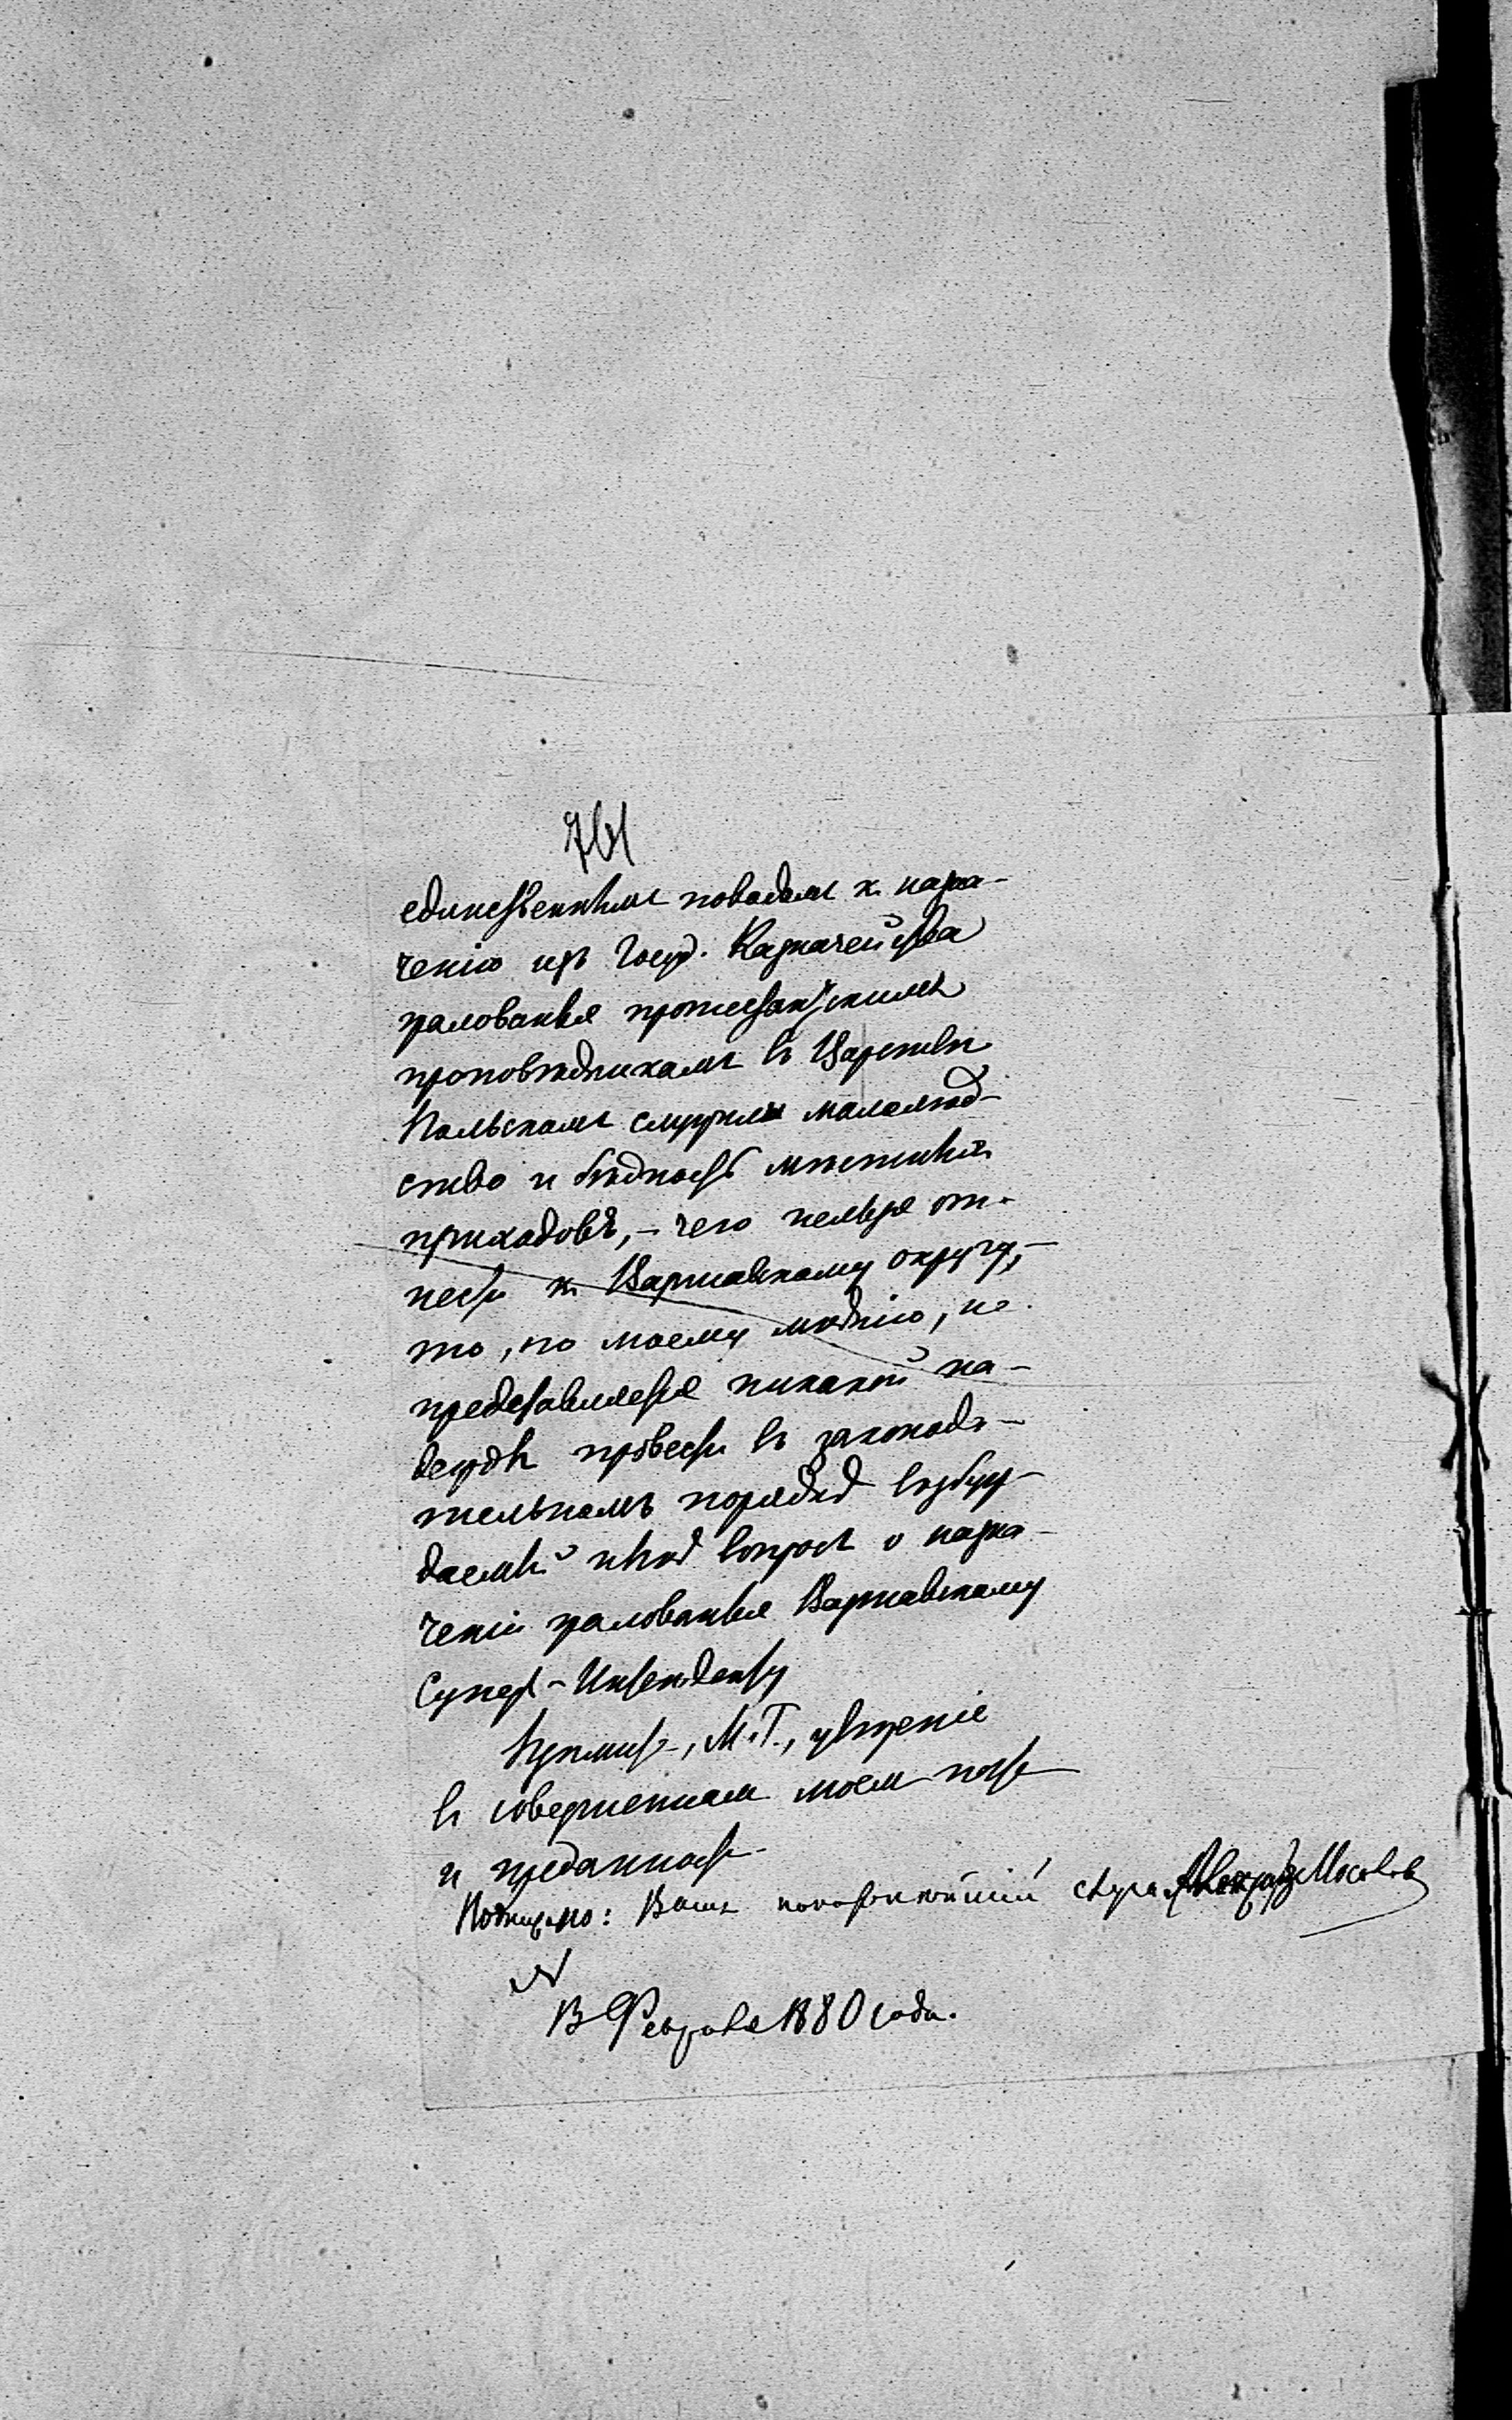 единственнымъ поводомъ къ назна-
ченію изъ Госуд. Казначейства
жалованья протестантскимъ
проповѣдникамъ въ Царствѣ
Польскомъ служили малолюд-
ство и бѣдность мѣстныхъ
приходовъ, - чего нельзя от-
нести къ Варшавскому округу, -
то, по моему мнѣнію, не
представляется никакой на-
дежды провести въ законода-
тельномъ порядкѣ возбуж-
даемый нынѣ вопросъ о назна-
ченіи жалованья Варшавскому
Супер-Интенденту
М. Г.,
въ совершенном моем почт
и преданности.
Подписано: Вашъ покорнѣйшій слуга Александръ Мосолов
№
Февраля 1880 года.